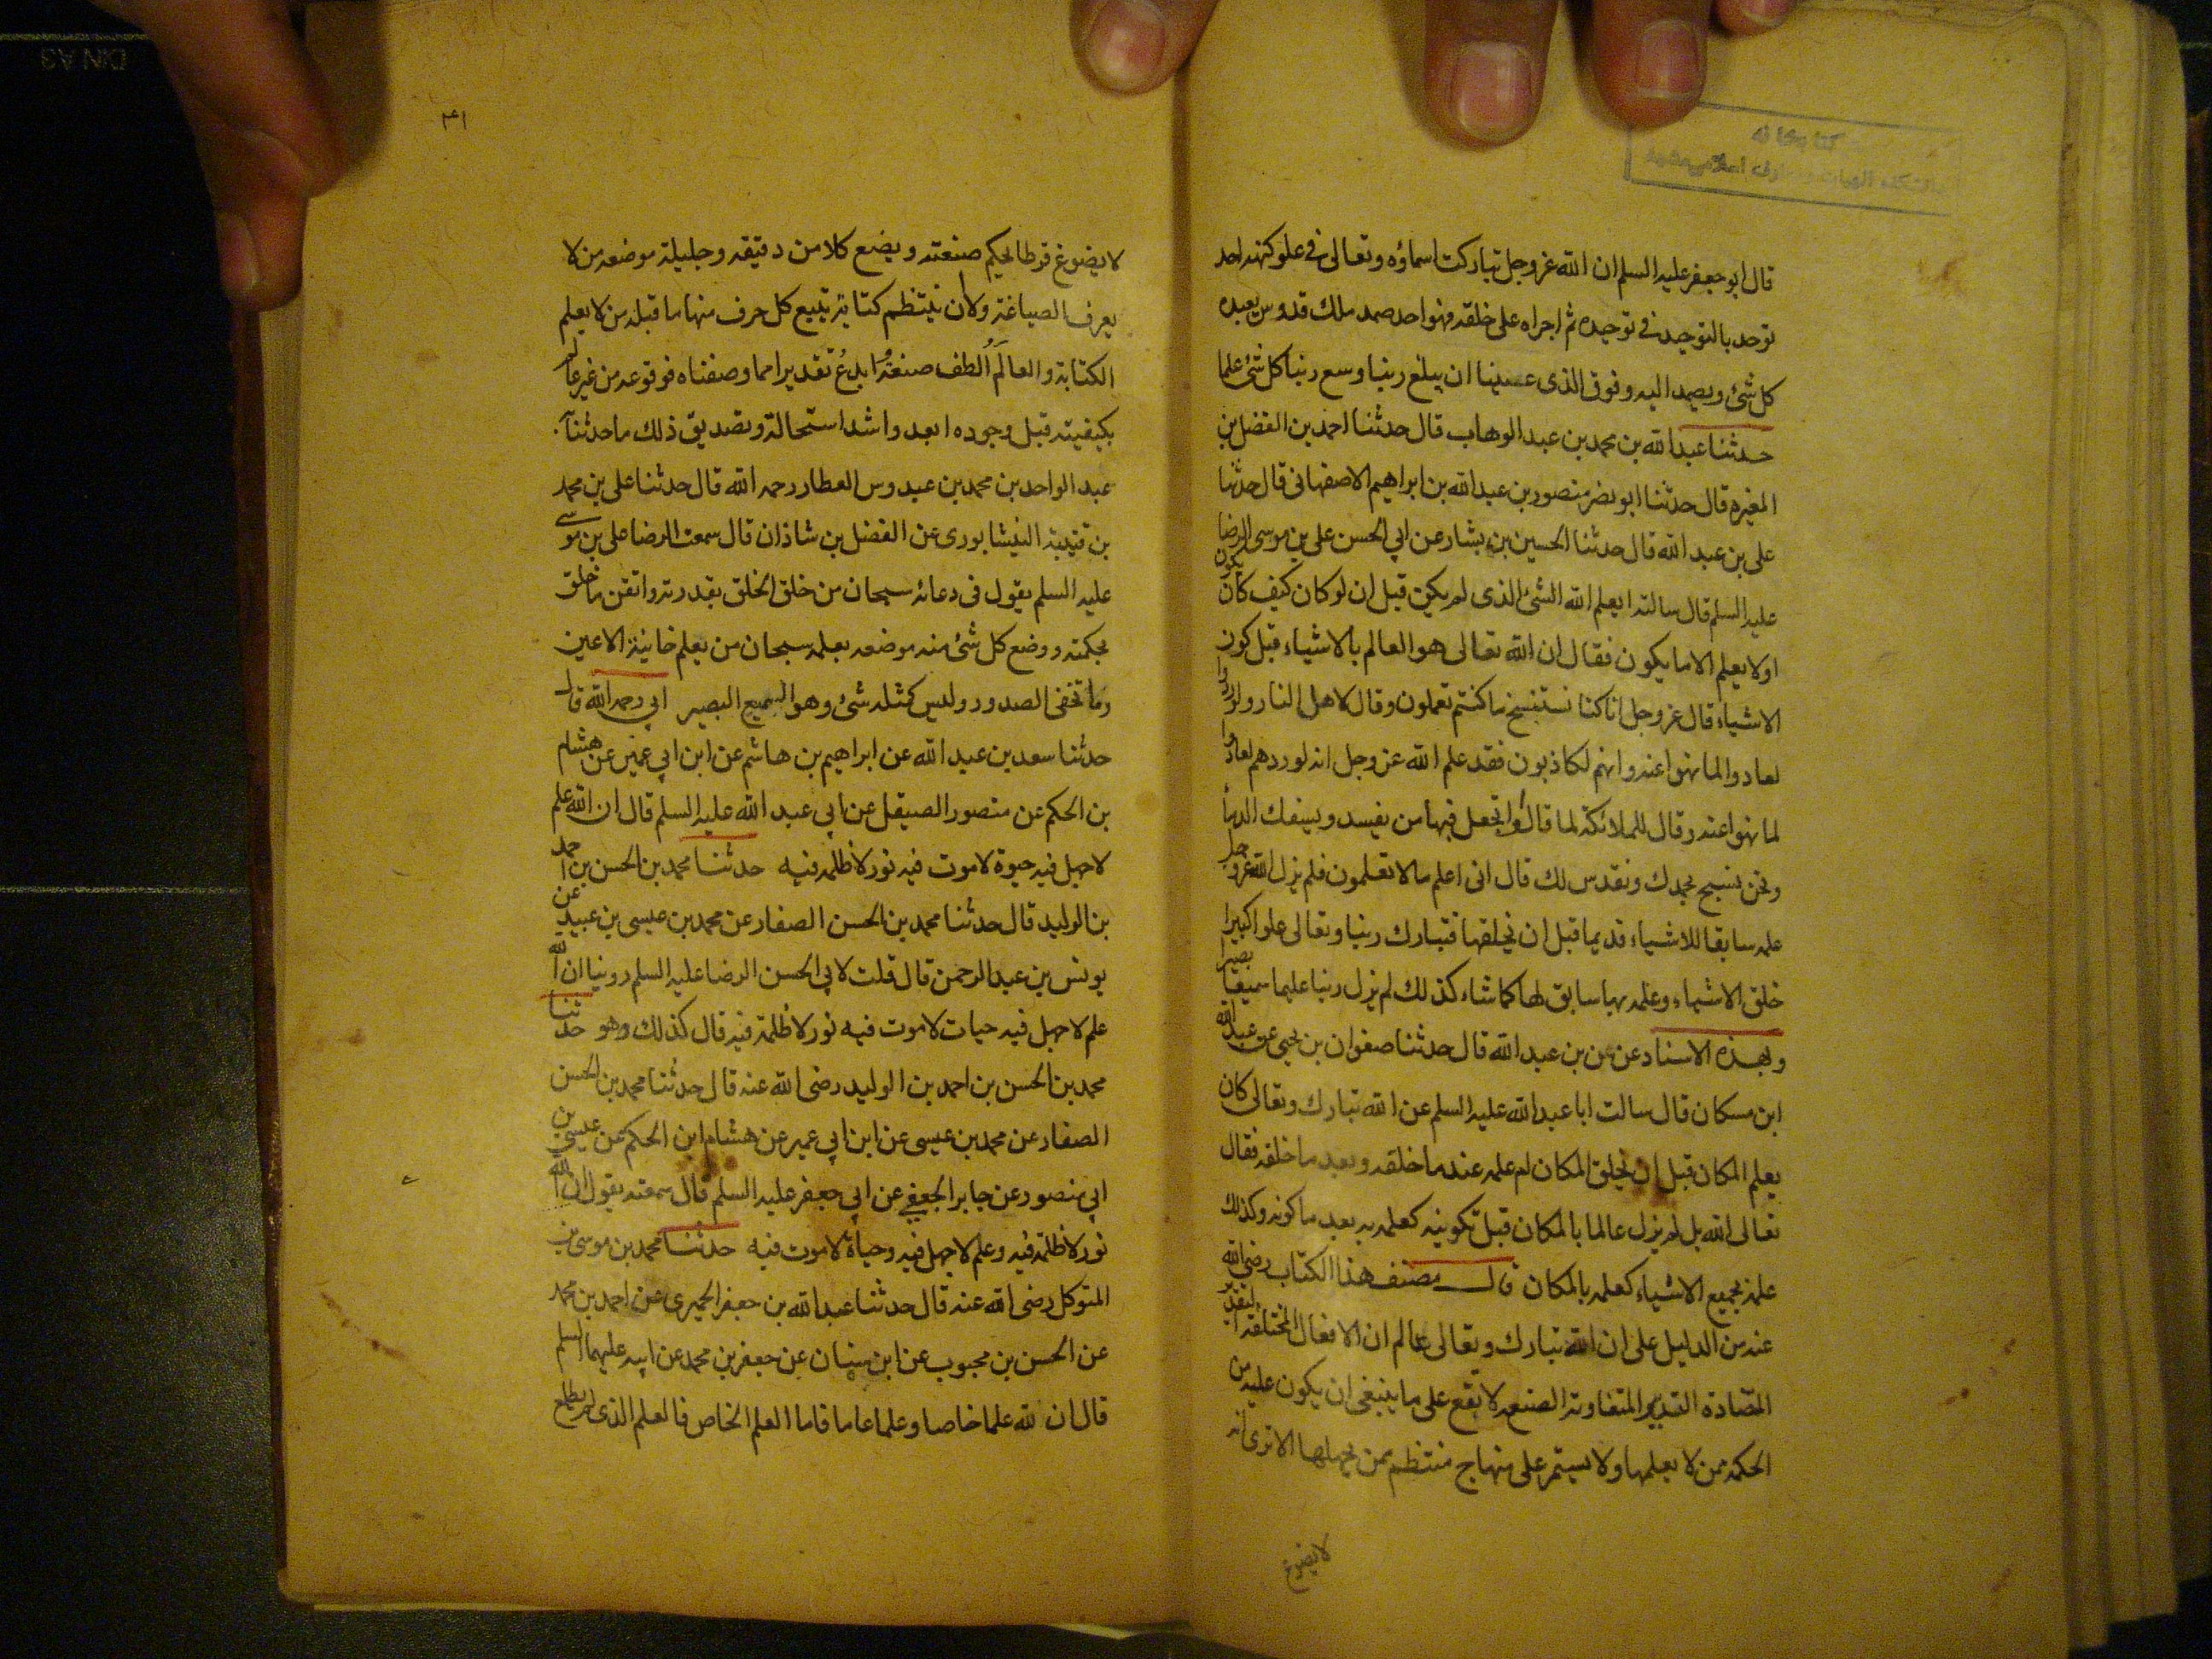 قال ابو جعفر عليه السلم ان الله عز وجل تباركت اسماؤه وتعالى في علو كنهه احد
توحد بالتوحيد في توحيده ثم اجراه على خلقه فهو احد صمد ملك قدوس يعبده
كل شئ ويصمد اليه وفوق الذى عسينا ان يبلغ ربنا وسع ربنا كل شئ علما
حدثنا عبد الله بن محمد بن عبد الوهاب قال حدثنا احمد بن الفضل بن
المغيره قال حدثنا ابو نصر منصور بن عبد الله بن ابراهيم الاصفهانى قال حدثنا
على بن عبد الله قال حدثنا الحسين بن بشار عن ابي الحسن على بن موسى الرضا
عليه السلم قال سالته ايعلم الله الشئ الذى لم يكن قبل ان لو كان كيف كان يكون
اولا يعلم الا ما يكون فقال ان الله تعالى هو العالم بالاشياء قبل كون
الاشياء قال عز وجل انا كنا نستنسخ ما كنتم تعملون وقال لاهل النار ولو ردوا
لعادوا لما نهوا عنه وانهم لكاذبون فقد علم الله عز وجل انه لو ردهم لعادوا
لما نهوا عنه وقال للملائكة لما قالوا اتجعل فيها من يفسد ويسفك الدماء
ونحن نسبح بحمدك ونقدس لك قال انى اعلم ما لا تعلمون فلم يزل الله عز وجل
علمه سابقا للاشياء قديما قبل ان يخلقها فتبارك ربنا وتعالى علوا كبيرا
خلق الاشياء وعلمه بها سابق لها كما شاء كذلك لم يزل ربنا عليما سميعا بصيرا
وبهذه الاسناد عن بن عبد الله قال حدثنا صفوان بن يحيى عن عبد الله
ابن مسكان قال سالت ابا عبد الله عليه السلم عن الله تبارك وتعالى كان
يعلم المكان قبل ان يخلق المكان ام علمه عند ما خلقه وبعد ما خلقه فقال
تعالى الله بل لم يزل عالما بالمكان قبل تكوينه كعلمه به بعد ما كونه وكذلك
علمه بجميع الاشياء كعلمه بالمكان قال مصنف هذا الكتاب رضى الله
عنه من الدليل على ان الله تبارك وتعالى عالم ان الافعال المختلفة التقدير
المتضادة التدبير المتفاوتة الصنعة لا تقع على ما ينبغى ان يكون عليه من
الحكمة ممن لا يعلمها ولا يستمر على منهاج منتظم ممن يجهلها الا ترى انه
لا يضوغ
٤١
لا يضوغ قرطا يحكم صنعته ويضع كلا من دقيقه وجليله موضعه من لا
يعرف الصياغة ولا ان ينتظم كتابة يتبع كل حرف منها ما قبله من لا يعلم
الكتابة والعالَم اُلطف صنعة وابدعُ تقديرا مما وصفناه فوقوعه من غير عالم
بكيفيته قبل وجوده ابعد واشد استحالة وتصديق ذلك ما حدثنا
عبد الواحد بن محمد بن عبدوس العطار رحمه الله قال حدثنا على بن محمد
بن قتيبة النيشابورى عن الفضل بن شاذان قال سمعت الرضا على بن موسى
عليه السلم يقول فى دعائه سبحان من خلق الخلق بقدرته واتقن ما خلق
بحكمته ووضع كل شئ منه موضعه بعلمه سبحان من يعلم خائنة الاعين
وما تخفى الصدور وليس كمثله شئ وهو السميع البصير ابي رحمه الله قال
حدثنا سعد بن عبد الله عن ابراهيم بن هاشم عن ابن ابي عمير عن هشام
بن الحكم عن منصور الصيقل عن ابي عبد الله عليه السلم قال ان الله علم
لا جهل فيه حيوة لا موت فيه نور لا ظلمه فيه حدثنا محمد بن الحسن بن احمد
بن الوليد قال حدثنا محمد بن الحسن الصفار عن محمد بن عيسى بن عبيد عن
يونس بن عبد الرحمن قال قلت لابي الحسن الرضا عليه السلم روينا ان الله
علم لا جهل فيه حيات لا موت فيه نور لا ظلمة فيه قال كذلك وهو حدثنا
محمد بن الحسن بن احمد بن الوليد رضى الله عنه قال حدثنا محمد بن الحسن
الصفار عن محمد بن عيسى عن ابن ابي عمير عن هشام ابن الحكم عن عيسى بن
ابي منصور عن جابر الجعفي عن ابي جعفر عليه السلم قال سمعته يقول ان الله
نور لا ظلمة فيه وعلم لا جهل فيه وحياة لا موت فيه حدثنا محمد بن موسى بن
المتوكل رضى الله عنه قال حدثنا عبد الله بن جعفر الحميرى عن احمد بن محمد
عن الحسن بن محبوب عن ابن سنان عن جعفر بن محمد عن ابيه عليهما السلم
قال ان لله علما خاصا وعلما عاما فاما العلم الخاص فالعلم الذى لم يطلع